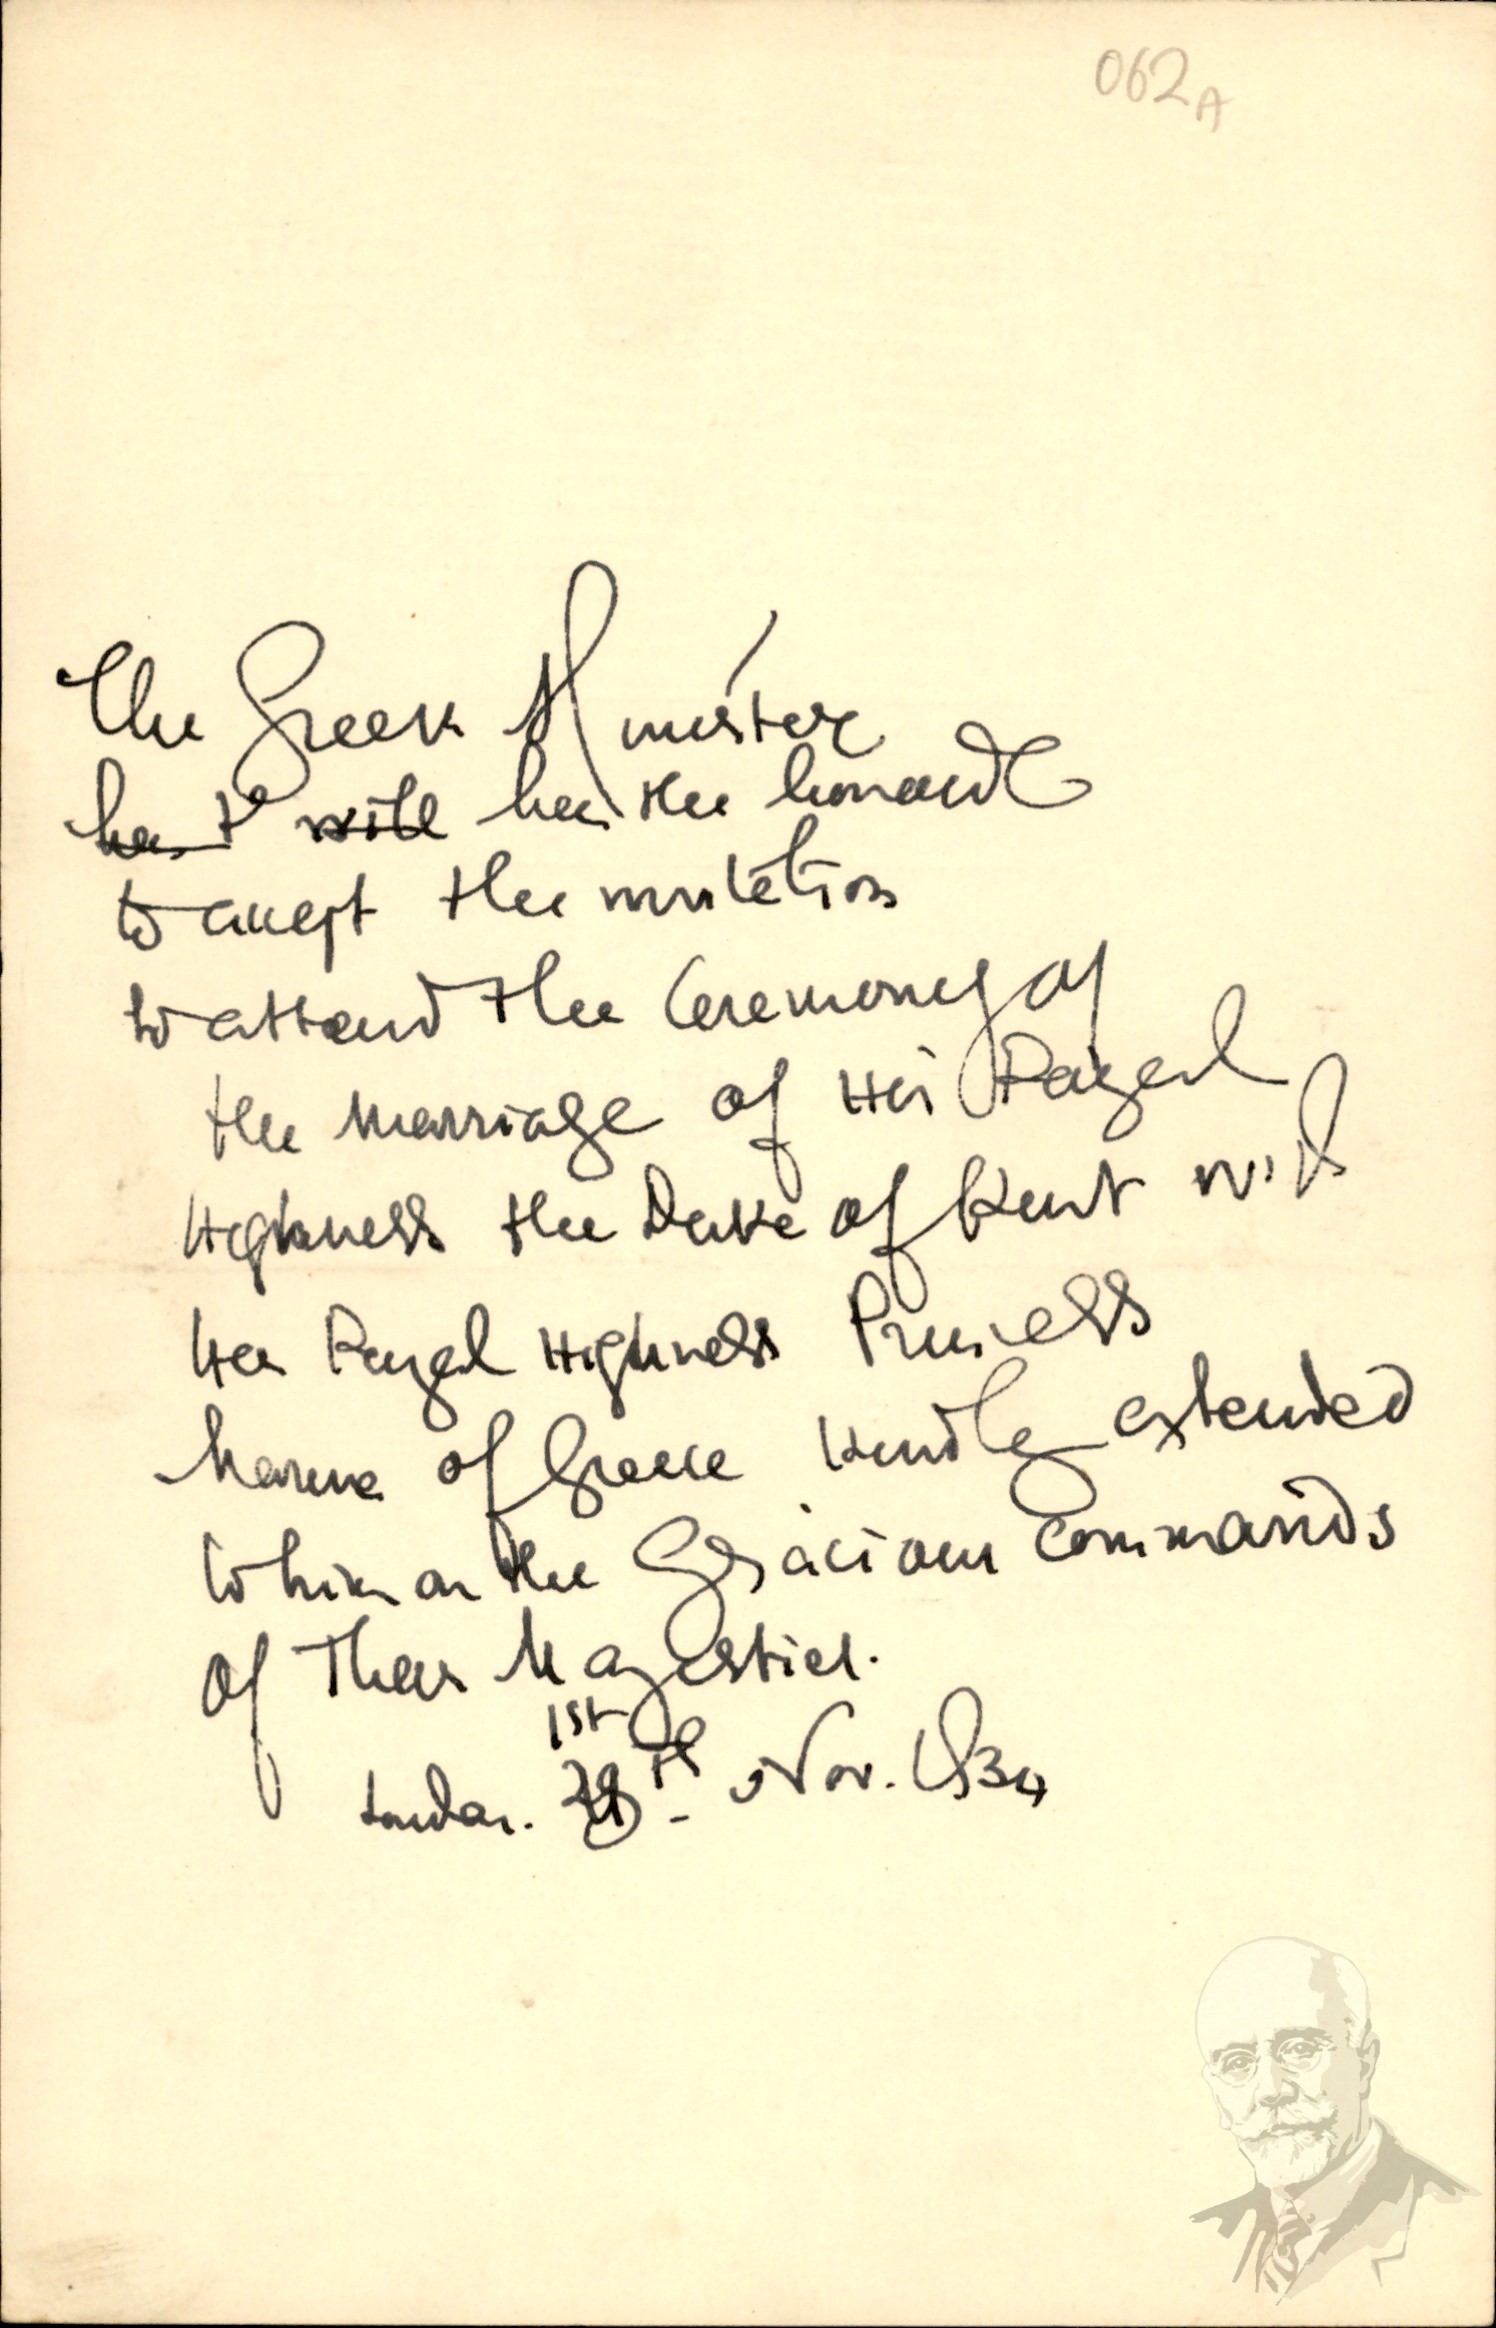 062A
The Greek Minister
has the honour
to accept the invitation
to attend the Ceremony of
the Marriage of His Royal
Highness the Duke of Kent with
Her Royal Highness Princess
Marina of Greece kindly extended
to him on the Gracious Commands
of Their Majesties.
1st
London. 28th Nov. 1934